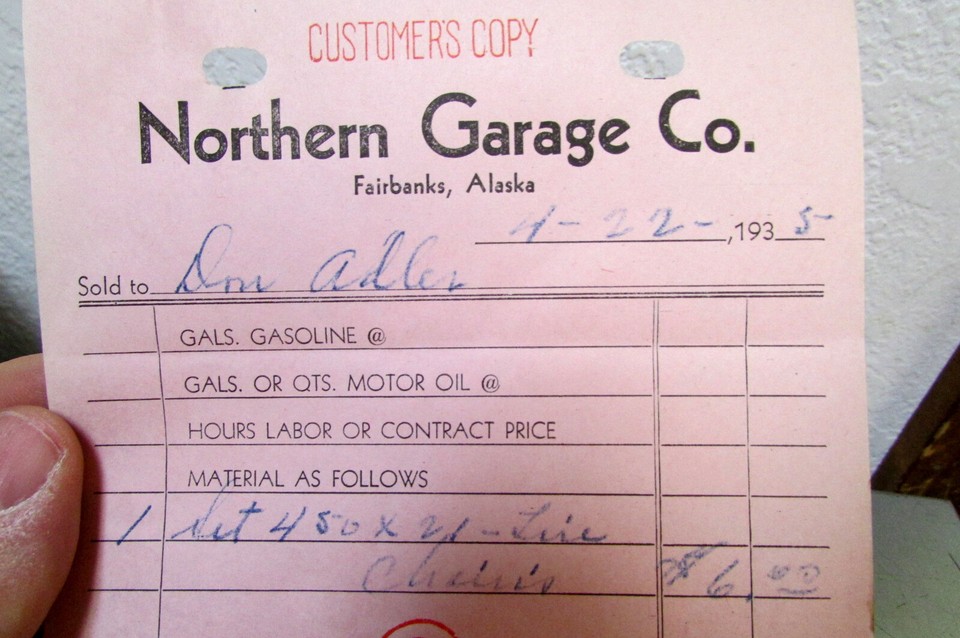 CUSTOMER'S COPY
Northern Garage Co.
Fairbanks, Alaska
4-22-, 1935
Sold to Don Adler
GALS. GASOLINE @
GALS. OR QTS. MOTOR OIL @
HOURS LABOR OR CONTRACT PRICE
MATERIAL AS FOLLOWS
1 Set 450 x 21 - Tire
Chains $6.00